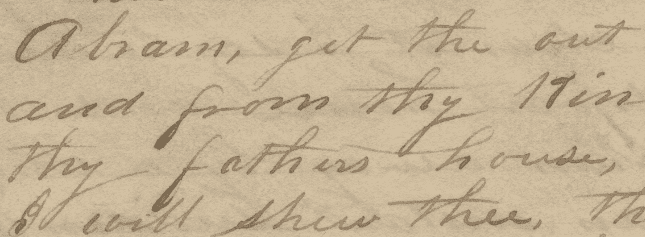 Abram, get the out
and from thy Kin
thy fathers house,
I will shew thee, th